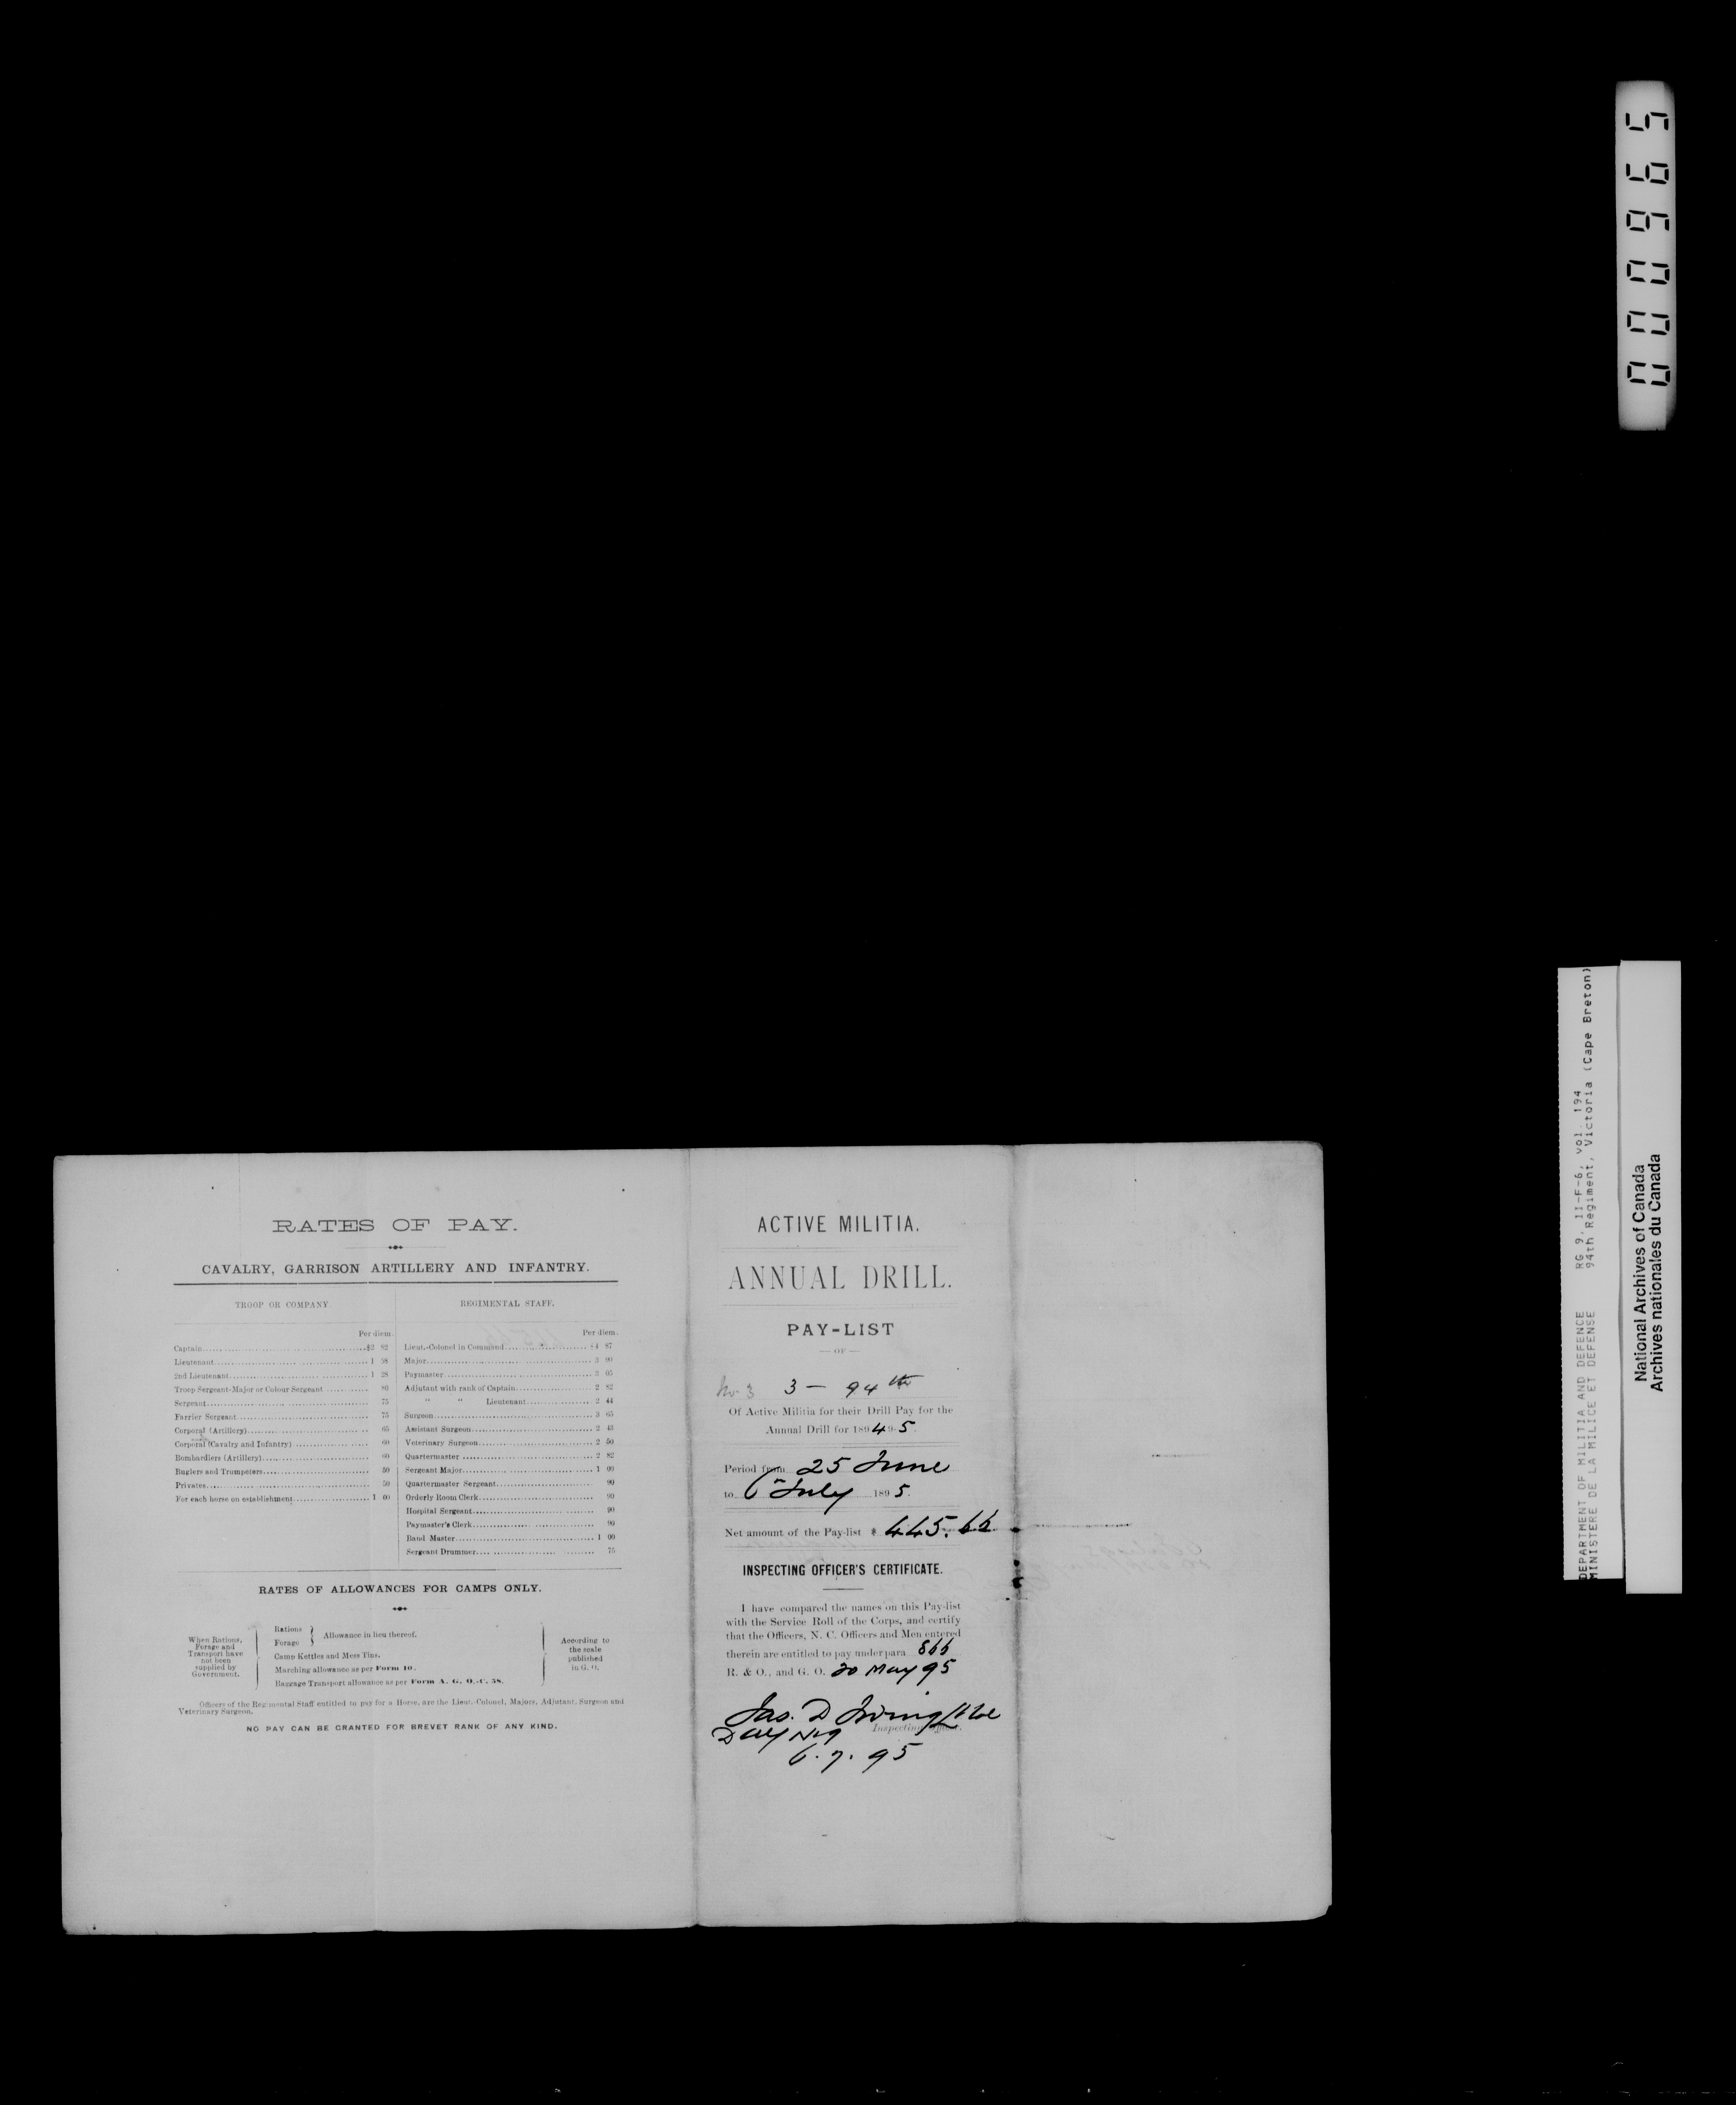 RATES OF PAY.
CAVALRY, GARRISON ARTILLERY AND INFANTRY.
TROOP OR COMPANY.
Per diem.
Captain $2 82
Lieutenant 1 58
2nd Lieutenant 1 28
Troop Sergeant-Major or Colour Sergeant 80
Sergeant 75
Farrier Sergeant 75
Corporal (Artillery) 65
Corporal (Cavalry and Infantry) 60
Bombardiers (Artillery) 60
Buglers and Trumpeters 50
Privates 50
For each horse on establishment 1 00
REGIMENTAL STAFF.
Per diem.
Lieut.-Colonel in Command $4 87
Major 3 90
Paymaster 3 05
Adjutant with rank of Captain 2 82
" " Lieutenant 2 44
Surgeon 3 65
Assistant Surgeon 2 43
Veterinary Surgeon 2 50
Quartermaster 2 82
Sergeant Major 1 00
Quartermaster Sergeant 90
Orderly Room Clerk 90
Hospital Sergeant 90
Paymaster's Clerk 90
Band Master 1 00
Sergeant Drummer 75
RATES OF ALLOWANCES FOR CAMPS ONLY.
When Rations, Forage and Transport have not been supplied by Government.
Rations
Forage
Allowance in lieu thereof.
Camp Kettles and Mess Tins.
Marching allowance as per Form 10.
Baggage Transport allowance as per Form A. G. O.-C. 58.
According to the scale published in G. O.
Officers of the Regimental Staff entitled to pay for a Horse, are the Lieut.-Colonel, Majors, Adjutant, Surgeon and
Veterinary Surgeon.
NO PAY CAN BE GRANTED FOR BREVET RANK OF ANY KIND.
ACTIVE MILITIA.
ANNUAL DRILL.
PAY-LIST
— OF —
No 3 3 — 94th
Of Active Militia for their Drill Pay for the
Annual Drill for 1894 9-5.
Period from 25 June
to 6 July 1895.
Net amount of the Pay-list $ 445.66
INSPECTING OFFICER'S CERTIFICATE.
I have compared the names on this Pay-list
with the Service Roll of the Corps, and certify
that the Officers, N. C. Officers and Men entered
therein are entitled to pay under para 866
R. & O., and G. O. 20 May 95
Jas. D Irving
Inspecting Officer.
6.7.95
000695
DEPARTMENT OF MILITIA AND DEFENCE RG 9, II-F-6, vol. 194
MINISTERE DE LA MILICE ET DEFENSE 94th Regiment, Victoria (Cape Breton)
National Archives of Canada
Archives nationales du Canada